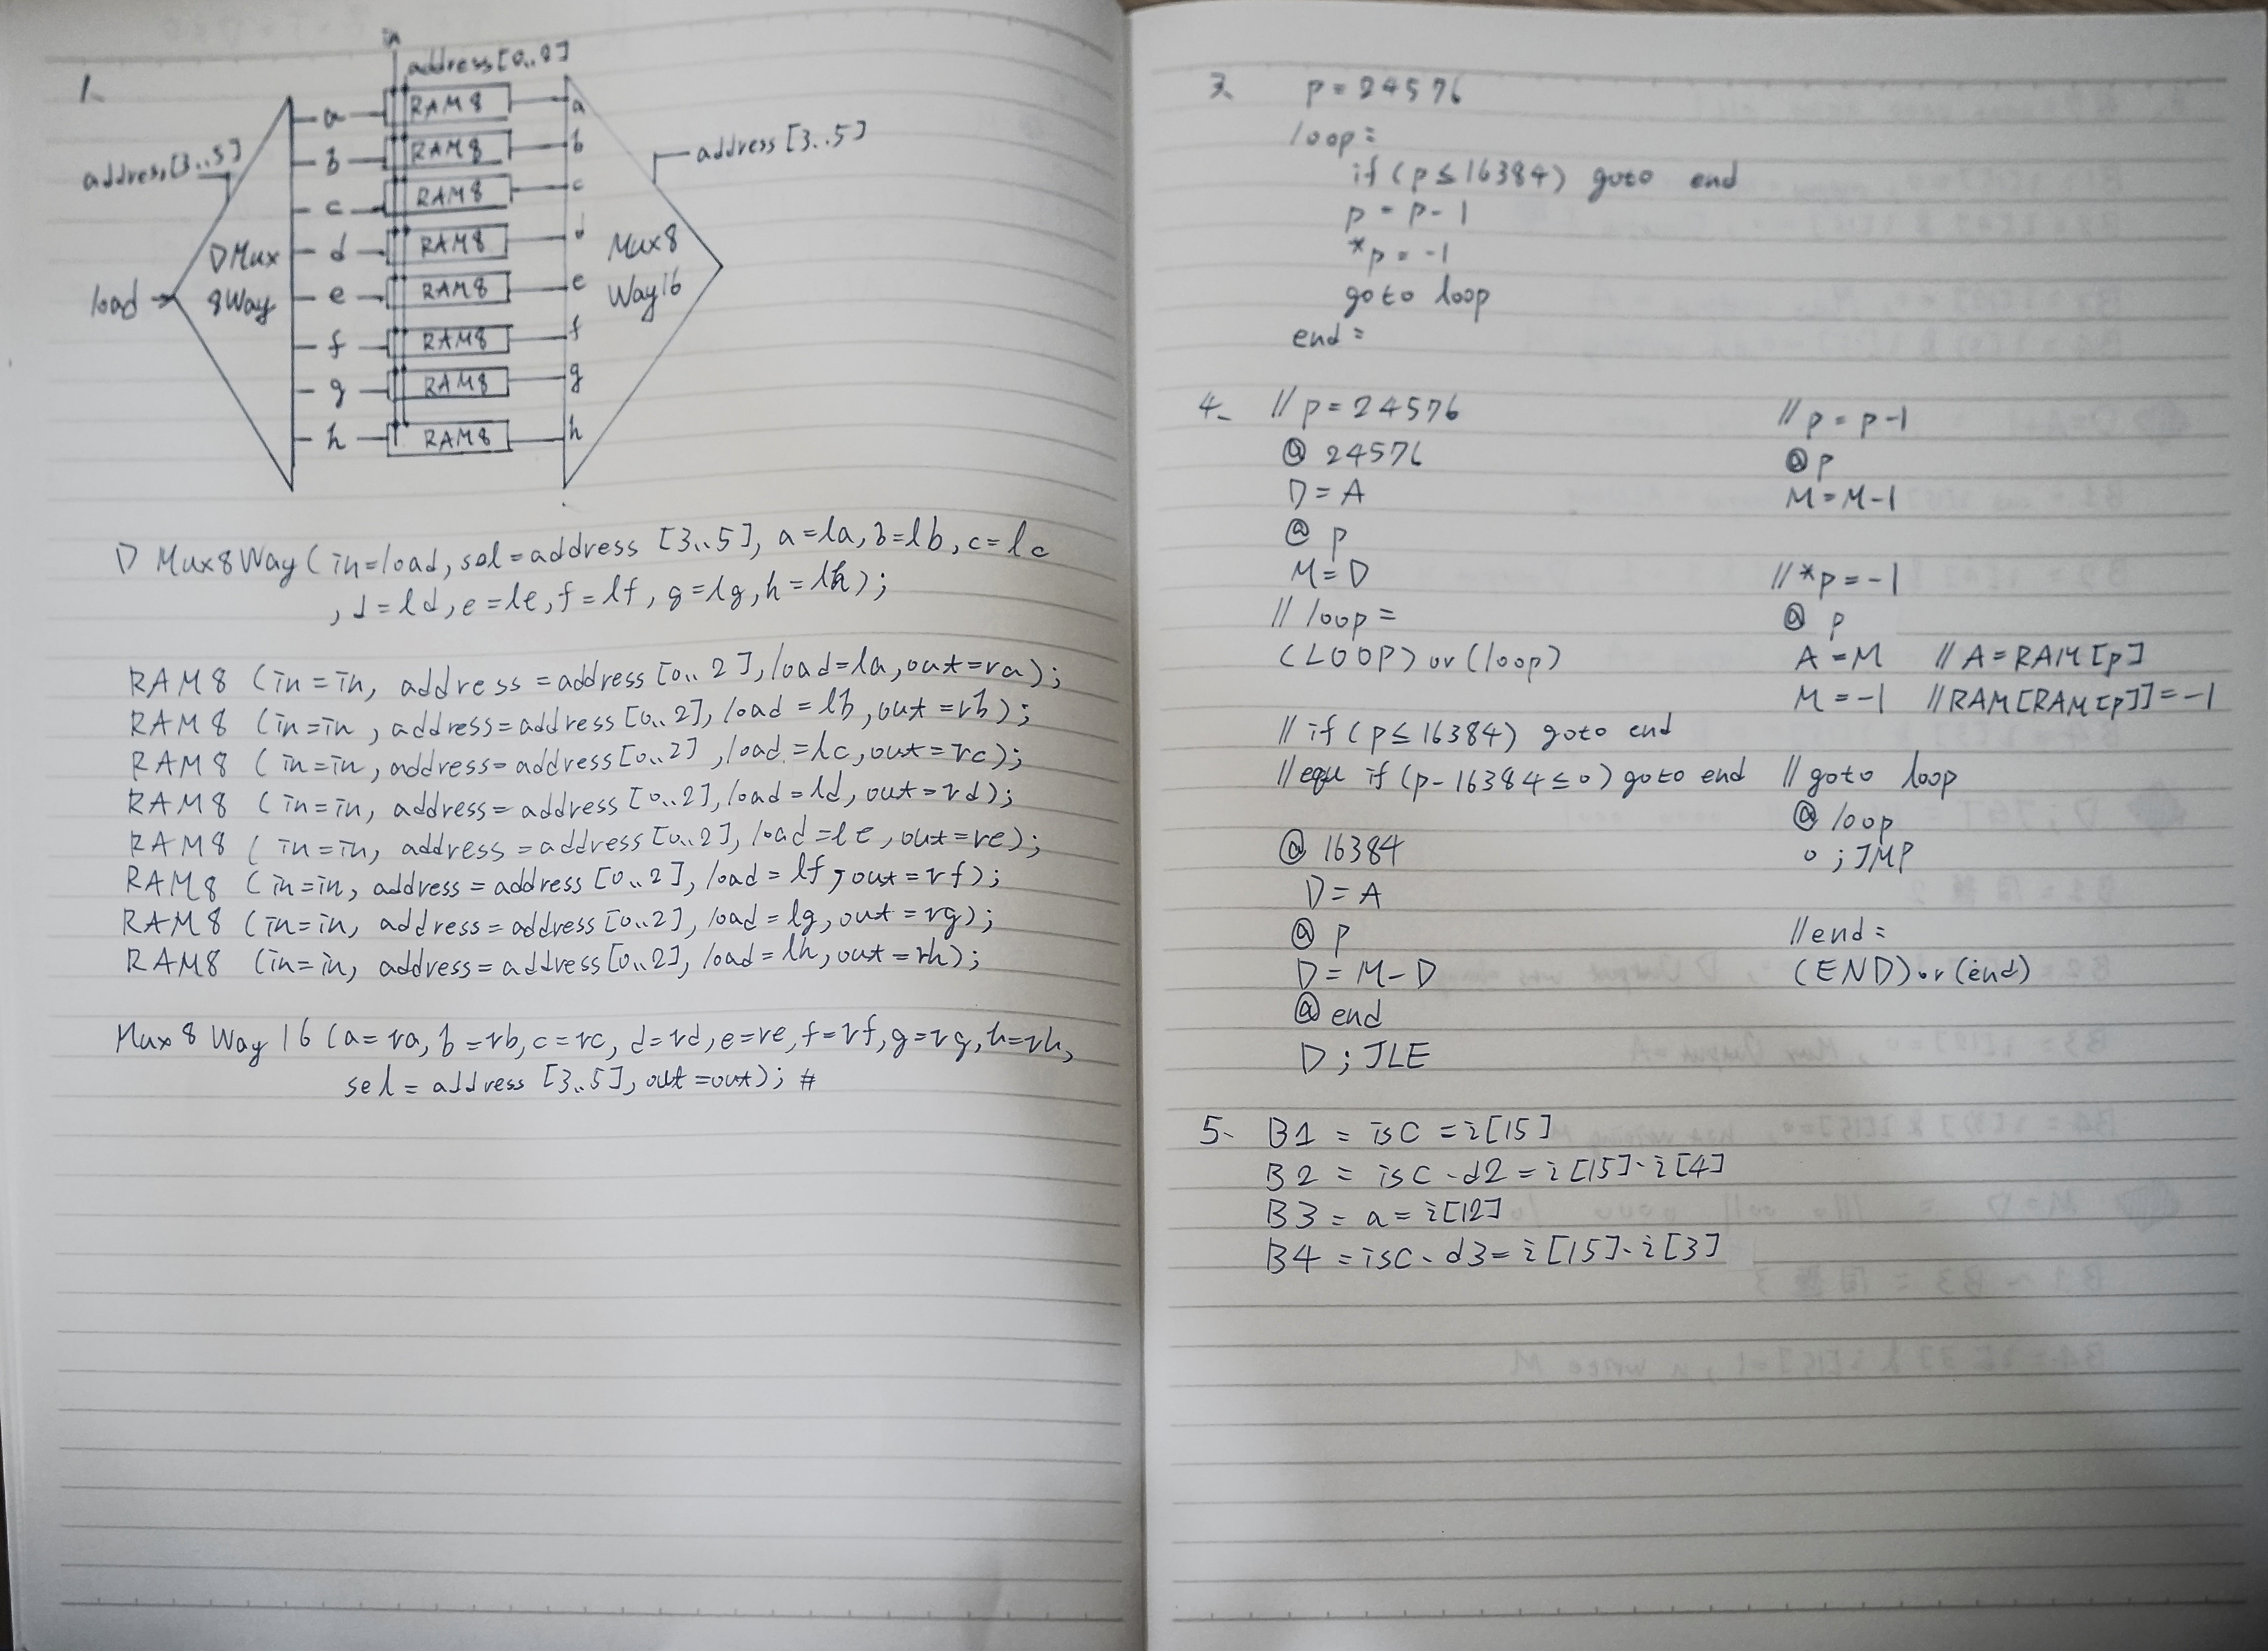 1.
in
address[0..8]
address[3..5]
load
DMux
8Way
a
b
c
d
e
f
g
h
RAM8
RAM8
RAM8
RAM8
RAM8
RAM8
RAM8
RAM8
a
b
c
d
e
f
g
h
Mux8
Way16
address[3..5]
DMux8Way(in=load, sel=address[3..5], a=la, b=lb, c=lc
, d=ld, e=le, f=lf, g=lg, h=lh);
RAM8 (in=in, address=address[0..2], load=la, out=ra);
RAM8 (in=in, address=address[0..2], load=lb, out=rb);
RAM8 (in=in, address=address[0..2], load=lc, out=rc);
RAM8 (in=in, address=address[0..2], load=ld, out=rd);
RAM8 (in=in, address=address[0..2], load=le, out=re);
RAM8 (in=in, address=address[0..2], load=lf, out=rf);
RAM8 (in=in, address=address[0..2], load=lg, out=rg);
RAM8 (in=in, address=address[0..2], load=lh, out=rh);
Mux8Way16 (a=ra, b=rb, c=rc, d=rd, e=re, f=rf, g=rg, h=rh,
sel=address[3..5], out=out); #
3. p=24576
loop:
if (p≤16384) goto end
p=p-1
*p=-1
goto loop
end:
4. // p=24576
@24576
D=A
@p
M=D
// loop:
(LOOP) or (loop)
// if (p≤16384) goto end
// equ if (p-16384≤0) goto end
@16384
D=A
@p
D=M-D
@end
D;JLE
// p=p-1
@p
M=M-1
// *p=-1
@p
A=M // A=RAM[p]
M=-1 // RAM[RAM[p]]=-1
// goto loop
@loop
0;JMP
// end:
(END) or (end)
5. B1 = isC = i[15]
B2 = isC·d2 = i[15]·i[4]
B3 = a = i[12]
B4 = isC·d3 = i[15]·i[3]